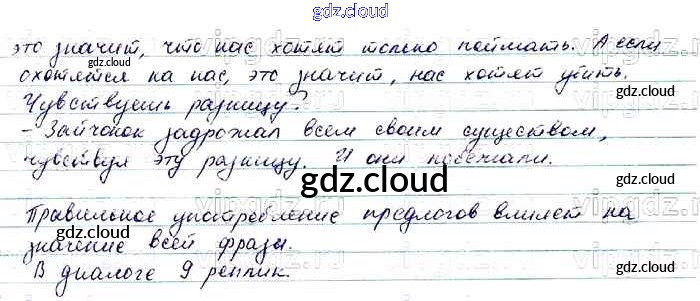 gdz.cloud
это значит, что нас хотят только поймать. А если
охотятся на нас, это значит, нас хотят убить.
gdz.cloud
gdz.cloud
Чувствуешь разницу?
- Зайчонок задрожал всем своим существом,
чувствуя эту разницу. И они побежали.
gdz.cloud
gdz.cloud
gdz.cloud
Правильное употребление предлогов влияет на
значение всей фразы.
gdz.cloud
В диалоге 9 реплик.
gdz.cloud
gdz.cloud